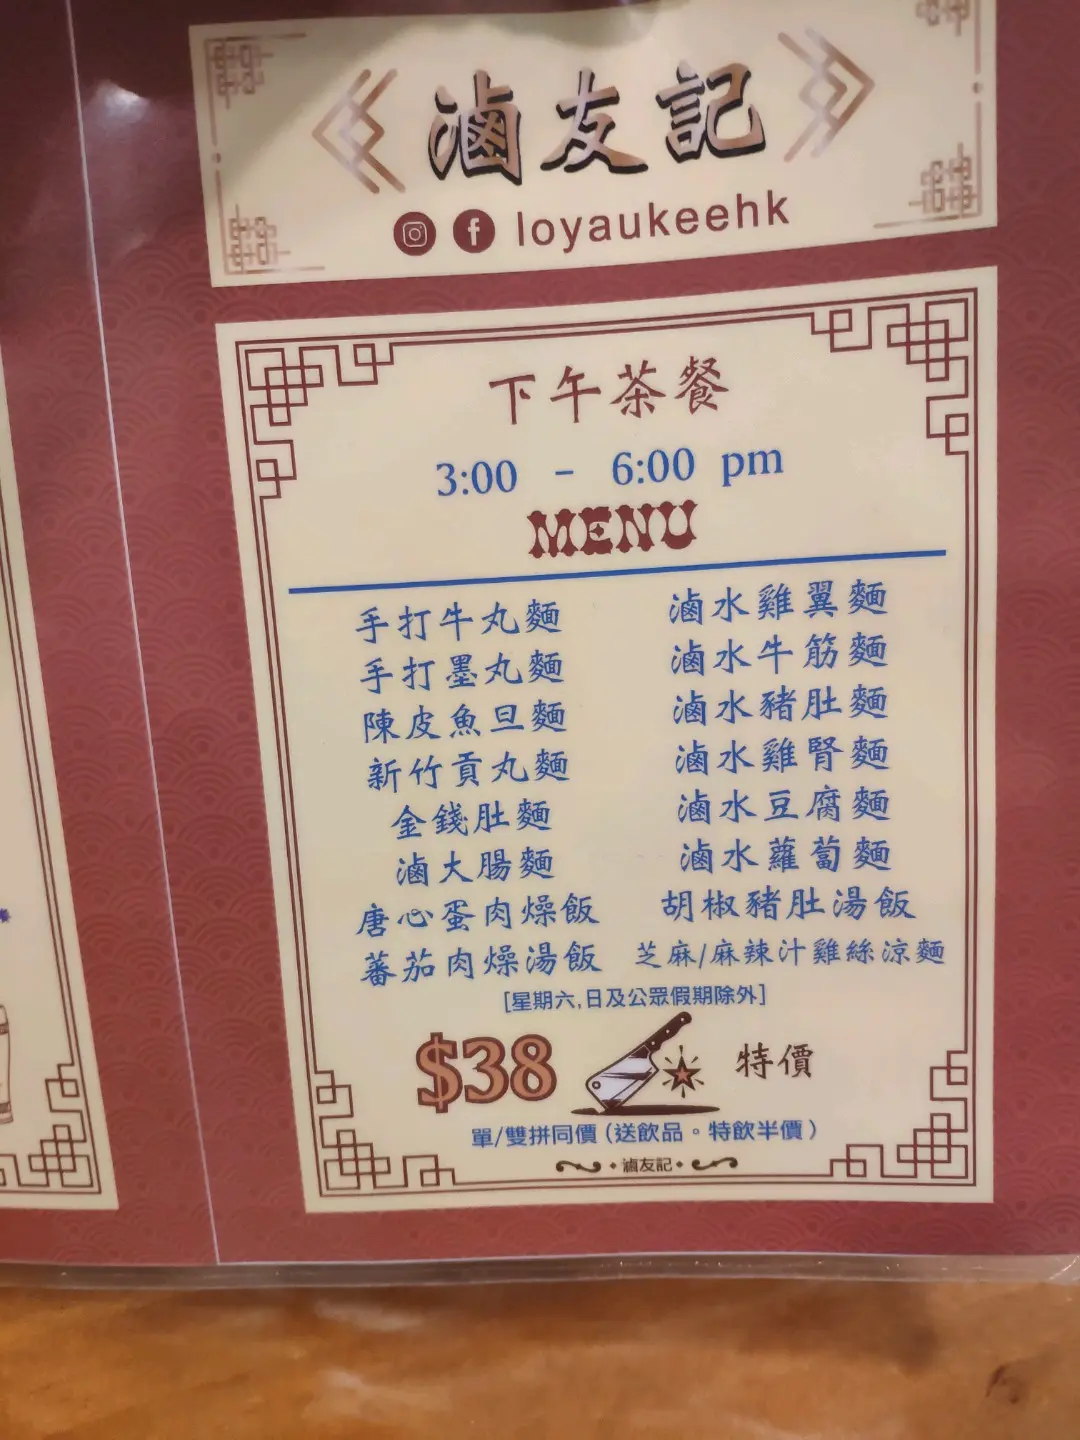 滷友記
loyaukeehk
下午茶餐
3:00 - 6:00 pm
MENU
手打牛丸麵
滷水雞翼麵
手打墨丸麵
滷水牛筋麵
陳皮魚旦麵
滷水豬肚麵
新竹貢丸麵
滷水雞腎麵
金錢肚麵
滷水豆腐麵
滷大腸麵
滷水蘿蔔麵
唐心蛋肉燥飯
胡椒豬肚湯飯
蕃茄肉燥湯飯
芝麻/麻辣汁雞絲涼麵
[星期六,日及公眾假期除外]
$38
特價
單/雙拼同價(送飲品。特飲半價)
滷友記